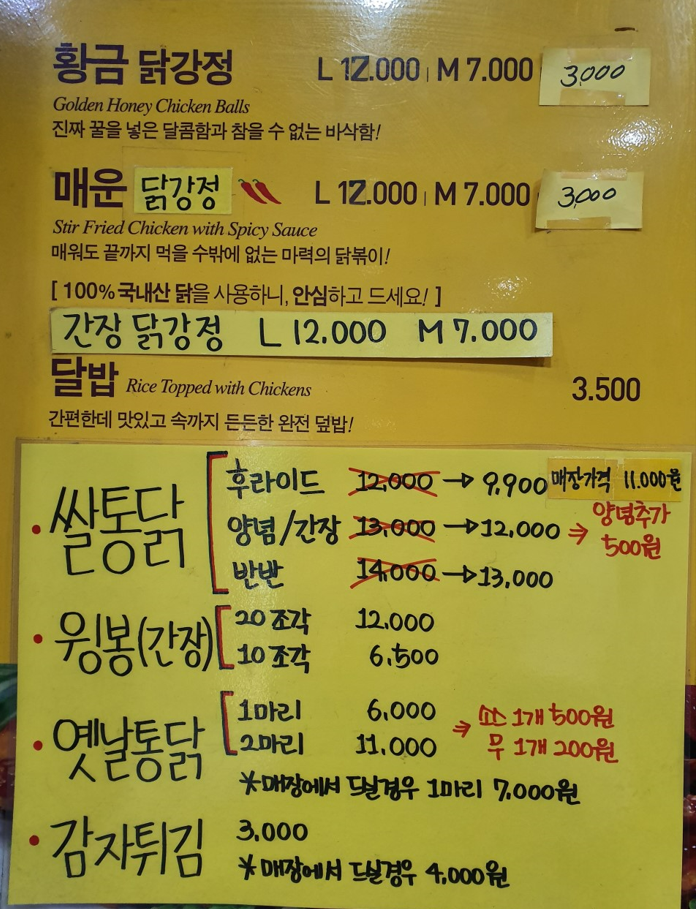 황금 닭강정 L 12.000 | M 7.000 3,000
Golden Honey Chicken Balls
진짜 꿀을 넣은 달콤함과 참을 수 없는 바삭함!
매운 닭강정 L 12.000 | M 7.000 3,000
Stir Fried Chicken with Spicy Sauce
매워도 끝까지 먹을 수밖에 없는 마력의 닭볶이!
[ 100% 국내산 닭을 사용하니, 안심하고 드세요! ]
간장 닭강정 L 12.000 M 7.000
달밥 Rice Topped with Chickens 3.500
간편한데 맛있고 속까지 든든한 완전 덮밥!
• 쌀통닭
후라이드 12,000 → 9,900 매장가격 11.000원
양념/간장 13,000 → 12,000 ⇒ 양념추가
500원
반반 14,000 → 13,000
• 윙봉(간장)
20조각 12,000
10조각 6,500
• 옛날통닭
1마리 6,000
2마리 11,000
⇒ 소스 1개 500원
무 1개 200원
*매장에서 드실경우 1마리 7,000원
• 감자튀김 3,000
*매장에서 드실경우 4,000원